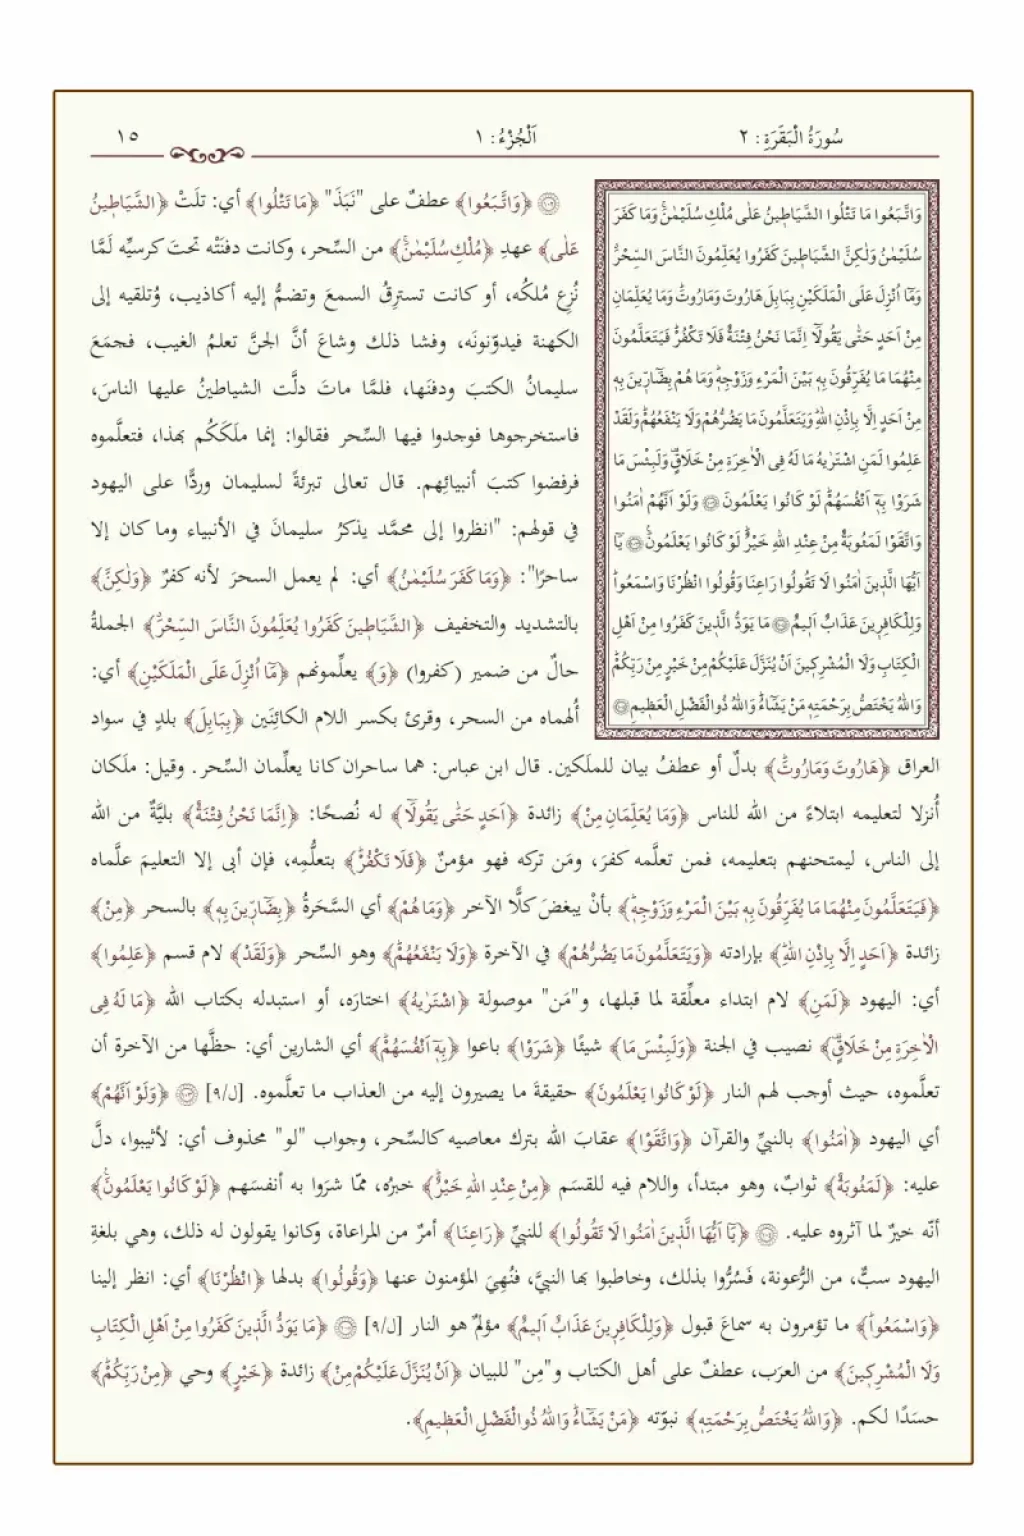 سُورَةُ الْبَقَرَةِ: ٢
اَلْجُزْءُ: ١
١٥
وَاتَّبَعُوا مَا تَتْلُوا الشَّيَاطٖينُ عَلٰى مُلْكِ سُلَيْمٰنَۚ وَمَا كَفَرَ
سُلَيْمٰنُ وَلٰكِنَّ الشَّيَاطٖينَ كَفَرُوا يُعَلِّمُونَ النَّاسَ السِّحْرَۗ
وَمَٓا اُنْزِلَ عَلَى الْمَلَكَيْنِ بِبَابِلَ هَارُوتَ وَمَارُوتَۜ وَمَا يُعَلِّمَانِ
مِنْ اَحَدٍ حَتّٰى يَقُولَٓا اِنَّمَا نَحْنُ فِتْنَةٌ فَلَا تَكْفُرْۜ فَيَتَعَلَّمُونَ
مِنْهُمَا مَا يُفَرِّقُونَ بِهٖ بَيْنَ الْمَرْءِ وَزَوْجِهٖۜ وَمَا هُمْ بِضَٓارّٖينَ بِهٖ
مِنْ اَحَدٍ اِلَّا بِاِذْنِ اللّٰهِۜ وَيَتَعَلَّمُونَ مَا يَضُرُّهُمْ وَلَا يَنْفَعُهُمْۜ وَلَقَدْ
عَلِمُوا لَمَنِ اشْتَرٰيهُ مَا لَهُ فِى الْاٰخِرَةِ مِنْ خَلَاقٍۜ وَلَبِئْسَ مَا
شَرَوْا بِهٖٓ اَنْفُسَهُمْۜ لَوْ كَانُوا يَعْلَمُونَ ۝١٠٢ وَلَوْ اَنَّهُمْ اٰمَنُوا
وَاتَّقَوْا لَمَثُوبَةٌ مِنْ عِنْدِ اللّٰهِ خَيْرٌۜ لَوْ كَانُوا يَعْلَمُونَۚ ۝١٠٣ يَٓا
اَيُّهَا الَّذٖينَ اٰمَنُوا لَا تَقُولُوا رَاعِنَا وَقُولُوا انْظُرْنَا وَاسْمَعُواۜ
وَلِلْكَافِرٖينَ عَذَابٌ اَلٖيمٌ ۝١٠٤ مَا يَوَدُّ الَّذٖينَ كَفَرُوا مِنْ اَهْلِ
الْكِتَابِ وَلَا الْمُشْرِكٖينَ اَنْ يُنَزَّلَ عَلَيْكُمْ مِنْ خَيْرٍ مِنْ رَبِّكُمْۜ
وَاللّٰهُ يَخْتَصُّ بِرَحْمَتِهٖ مَنْ يَشَٓاءُۜ وَاللّٰهُ ذُوالْفَضْلِ الْعَظٖيمِ ۝١٠٥
۝١٠٢ ﴿وَاتَّبَعُوا﴾ عطفٌ على "نَبَذَ" ﴿مَا تَتْلُوا﴾ أي: تلَتْ ﴿الشَّيَاطٖينُ
عَلٰى﴾ عهدِ ﴿مُلْكِ سُلَيْمٰنَۚ﴾ من السِّحر، وكانت دفنَتْه تحتَ كرسيِّه لَمَّا
نُزِع مُلكُه، أو كانت تسترِقُ السمعَ وتضمُّ إليه أكاذيب، وتُلقيه إلى
الكهنة فيدوّنونَه، وفشا ذلك وشاعَ أنَّ الجنَّ تعلمُ الغيب، فجمَعَ
سليمانُ الكتبَ ودفنَها، فلمَّا ماتَ دلَّت الشياطينُ عليها الناسَ،
فاستخرجوها فوجدوا فيها السِّحر فقالوا: إنما ملَكَكُم بهذا، فتعلَّموه
فرفضوا كتبَ أنبيائِهم. قال تعالى تبرئةً لسليمان وردًّا على اليهود
في قولهم: "انظروا إلى محمَّد يذكرُ سليمانَ في الأنبياء وما كان إلا
ساحرًا": ﴿وَمَا كَفَرَ سُلَيْمٰنُ﴾ أي: لم يعمل السحرَ لأنه كفرٌ ﴿وَلٰكِنَّ﴾
بالتشديد والتخفيف ﴿الشَّيَاطٖينَ كَفَرُوا يُعَلِّمُونَ النَّاسَ السِّحْرَۗ﴾ الجملةُ
حالٌ من ضمير (كفروا) ﴿وَ﴾ يعلِّمونهم ﴿مَٓا اُنْزِلَ عَلَى الْمَلَكَيْنِ﴾ أي:
أُلهماه من السحر، وقرئ بكسر اللام الكائِنَين ﴿بِبَابِلَ﴾ بلدٍ في سواد
العراق ﴿هَارُوتَ وَمَارُوتَۜ﴾ بدلٌ أو عطفُ بيان للملَكين. قال ابن عباس: هما ساحران كانا يعلِّمان السِّحر. وقيل: ملَكان
أُنزلا لتعليمه ابتلاءً من الله للناس ﴿وَمَا يُعَلِّمَانِ مِنْ﴾ زائدة ﴿اَحَدٍ حَتّٰى يَقُولَٓا﴾ له نُصحًا: ﴿اِنَّمَا نَحْنُ فِتْنَةٌ﴾ بليَّةٌ من الله
إلى الناس، ليمتحنهم بتعليمه، فمن تعلَّمه كفرَ، ومَن تركه فهو مؤمنٌ ﴿فَلَا تَكْفُرْۜ﴾ بتعلُّمِه، فإن أبى إلا التعليمَ علَّماه
﴿فَيَتَعَلَّمُونَ مِنْهُمَا مَا يُفَرِّقُونَ بِهٖ بَيْنَ الْمَرْءِ وَزَوْجِهٖۜ﴾ بأنْ يبغضَ كلًّا الآخر ﴿وَمَا هُمْ﴾ أي السَّحَرةُ ﴿بِضَٓارّٖينَ بِهٖ﴾ بالسحر ﴿مِنْ﴾
زائدة ﴿اَحَدٍ اِلَّا بِاِذْنِ اللّٰهِۜ﴾ بإرادته ﴿وَيَتَعَلَّمُونَ مَا يَضُرُّهُمْ﴾ في الآخرة ﴿وَلَا يَنْفَعُهُمْۜ﴾ وهو السِّحر ﴿وَلَقَدْ﴾ لام قسم ﴿عَلِمُوا﴾
أي: اليهود ﴿لَمَنِ﴾ لام ابتداء معلِّقة لما قبلها، و"مَن" موصولة ﴿اشْتَرٰيهُ﴾ اختارَه، أو استبدله بكتاب الله ﴿مَا لَهُ فِى
الْاٰخِرَةِ مِنْ خَلَاقٍۜ﴾ نصيب في الجنة ﴿وَلَبِئْسَ مَا﴾ شيئًا ﴿شَرَوْا﴾ باعوا ﴿بِهٖٓ اَنْفُسَهُمْۜ﴾ أي الشارين أي: حظَّها من الآخرة أن
تعلَّموه، حيث أوجب لهم النار ﴿لَوْ كَانُوا يَعْلَمُونَ﴾ حقيقةَ ما يصيرون إليه من العذاب ما تعلَّموه. [ل/٩] ۝١٠٣ ﴿وَلَوْ اَنَّهُمْ﴾
أي اليهود ﴿اٰمَنُوا﴾ بالنبيِّ والقرآن ﴿وَاتَّقَوْا﴾ عقابَ الله بترك معاصيه كالسِّحر، وجواب "لو" محذوف أي: لأثيبوا، دلَّ
عليه: ﴿لَمَثُوبَةٌ﴾ ثوابٌ، وهو مبتدأ، واللام فيه للقسَم ﴿مِنْ عِنْدِ اللّٰهِ خَيْرٌۜ﴾ خبرُه، ممّا شرَوا به أنفسَهم ﴿لَوْ كَانُوا يَعْلَمُونَۚ﴾
أنّه خيرٌ لما آثروه عليه. ۝١٠٤ ﴿يَٓا اَيُّهَا الَّذٖينَ اٰمَنُوا لَا تَقُولُوا﴾ للنبيِّ ﴿رَاعِنَا﴾ أمرٌ من المراعاة، وكانوا يقولون له ذلك، وهي بلغةِ
اليهود سبٌّ، من الرُّعونة، فَسُرُّوا بذلك، وخاطبوا بها النبيَّ، فنُهِيَ المؤمنون عنها ﴿وَقُولُوا﴾ بدلها ﴿انْظُرْنَا﴾ أي: انظر إلينا
﴿وَاسْمَعُواۜ﴾ ما تؤمرون به سماعَ قبول ﴿وَلِلْكَافِرٖينَ عَذَابٌ اَلٖيمٌ﴾ مؤلمٌ هو النار [ل/٩] ۝١٠٥ ﴿مَا يَوَدُّ الَّذٖينَ كَفَرُوا مِنْ اَهْلِ الْكِتَابِ
وَلَا الْمُشْرِكٖينَ﴾ من العرَب، عطفٌ على أهل الكتاب و"مِن" للبيان ﴿اَنْ يُنَزَّلَ عَلَيْكُمْ مِنْ﴾ زائدة ﴿خَيْرٍ﴾ وحي ﴿مِنْ رَبِّكُمْۜ﴾
حسَدًا لكم. ﴿وَاللّٰهُ يَخْتَصُّ بِرَحْمَتِهٖ﴾ نبوّته ﴿مَنْ يَشَٓاءُۜ وَاللّٰهُ ذُوالْفَضْلِ الْعَظٖيمِ﴾.